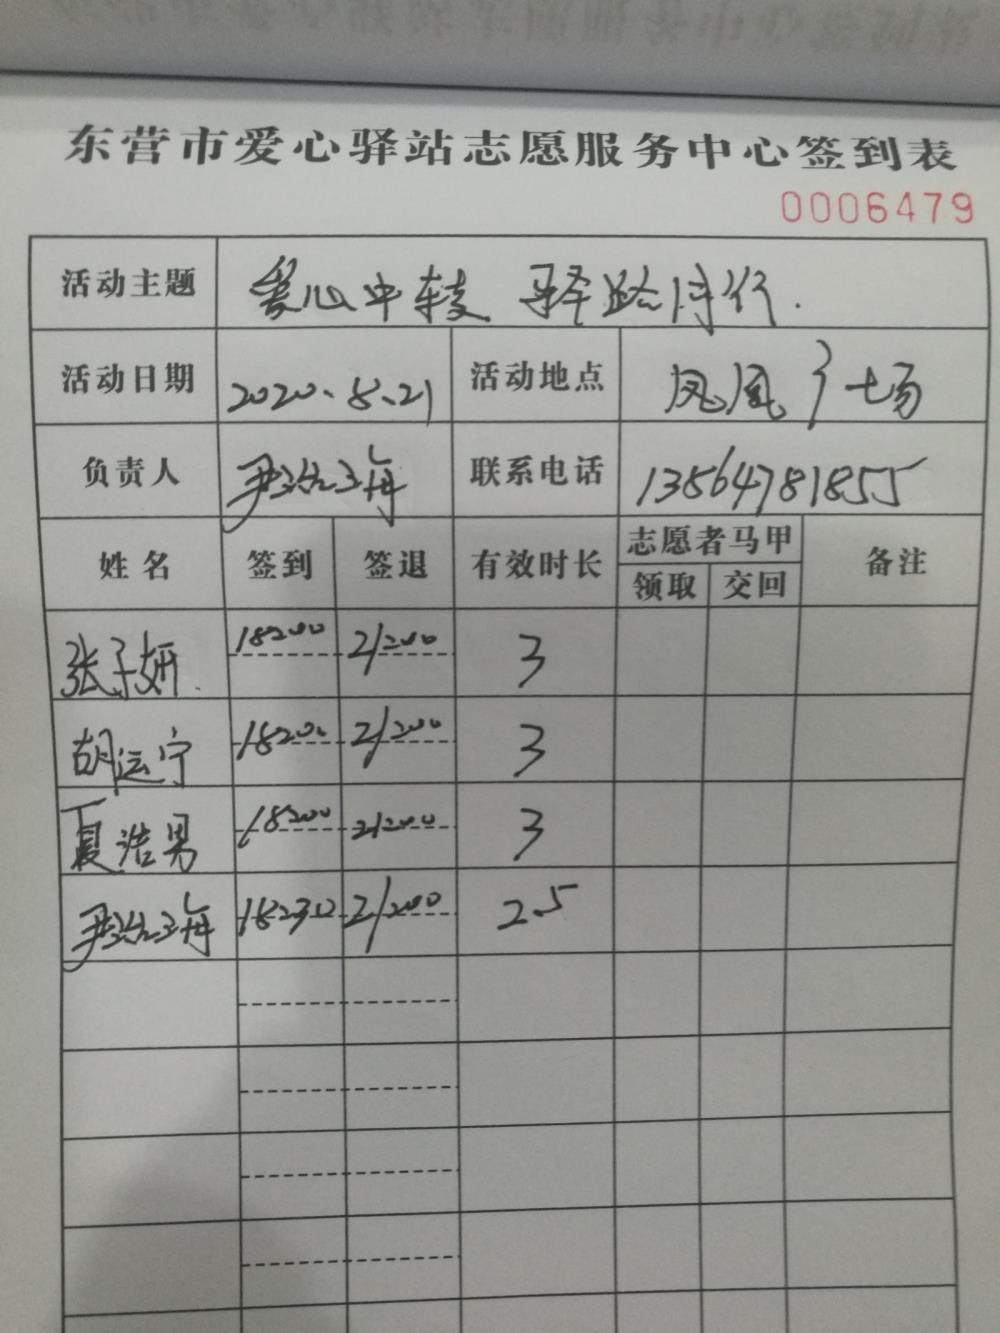 东营市爱心驿站志愿服务中心签到表
0006479
活动主题 爱心中转 驿路同行.
活动日期 2020.8.21 活动地点 凤凰广场
负责人 尹治海 联系电话 13864781855
姓名 签到 签退 有效时长 志愿者马甲 备注
领取 交回
张子妍. 18:00 21:00 3
胡运宁 18:00 21:00 3
夏浩男 18:00 21:00 3
18:30 21:00 2.5